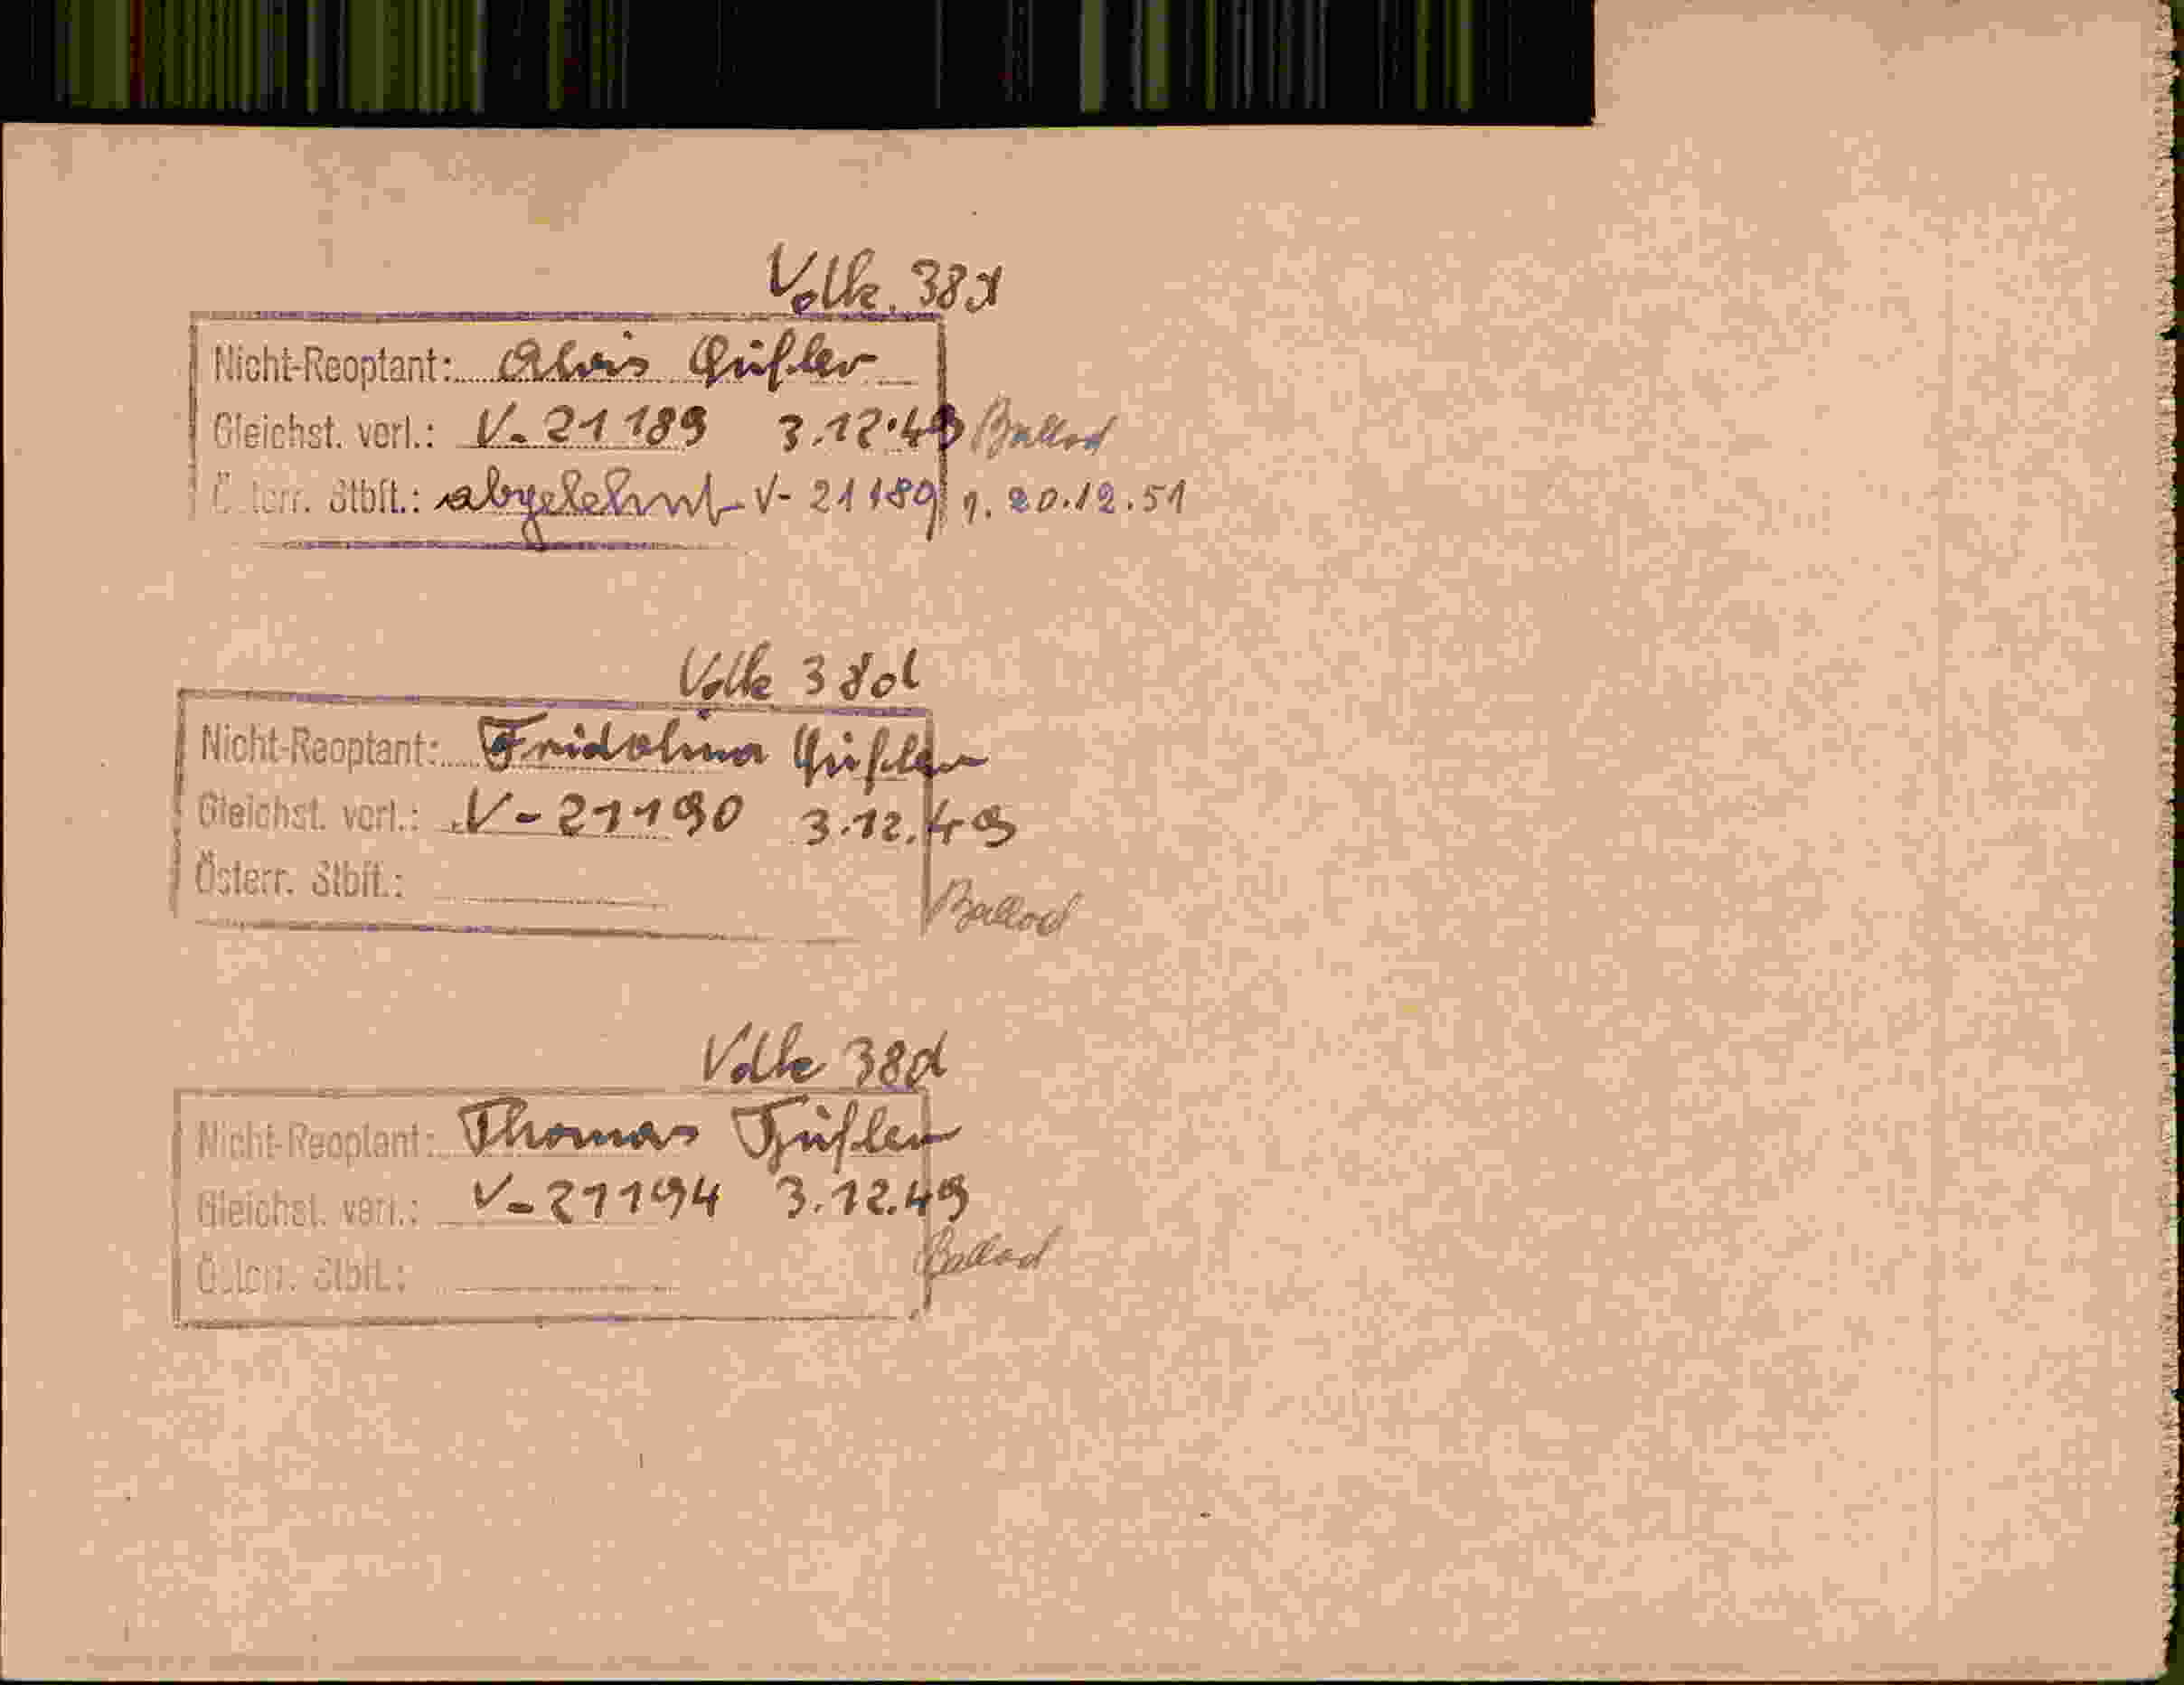 Volk. 38d
Nicht-Reoptant: Alois Gufler
Gleichst. verl.: V-21189 3.12.49 Ballod
Österr. Stbft.: abgelehnt V-21189 v. 20.12.51
Volk 38d
Nicht-Reoptant: Fridolina Gufler
Gleichst. verl.: V-21190 3.12.49
Österr. Stbft.:
Ballod
Volk 38d
Nicht-Reoptant: Thomas Gufler
Gleichst. verl.: V-21194 3.12.49
Ballod
Österr. Stbft.: